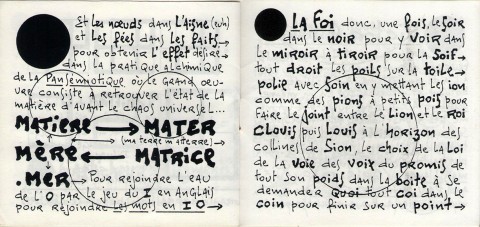 Et les NŒuds dans L'Aisne (euh)
et Les fées dans Les faits→
pour obtenir L'effet désiré→
dans la pratique alchimique
de la Pansémiotique où le Grand oeu-
vre consiste à retrouver l'état de la
matière d'avant le chaos universel...
MATIERE → MATER
(ma terre m'atterre)
MÈRE ← MATRICE
.MER → Pour rejoindre L'eau
de L'O par le jeu du I en Anglais
pour rejoindre Les mots en IO→
LA Foi donc, une fois, le soir
dans le noir pour y voir dans
le miroir à tiroir pour la Soif→
tout droit les poils sur la toile→
polie avec soin en y mettant les ion
comme des pions à petits pois pour
faire le joint entre le Lion et le Roi
CLOVIS puis Louis à L'horizon des
collines de Sion, le choix de la Loi
de la voie des voix du promis de
tout son poids dans la boîte à se
demander quoi tout coi dans le
coin pour finir sur un point→